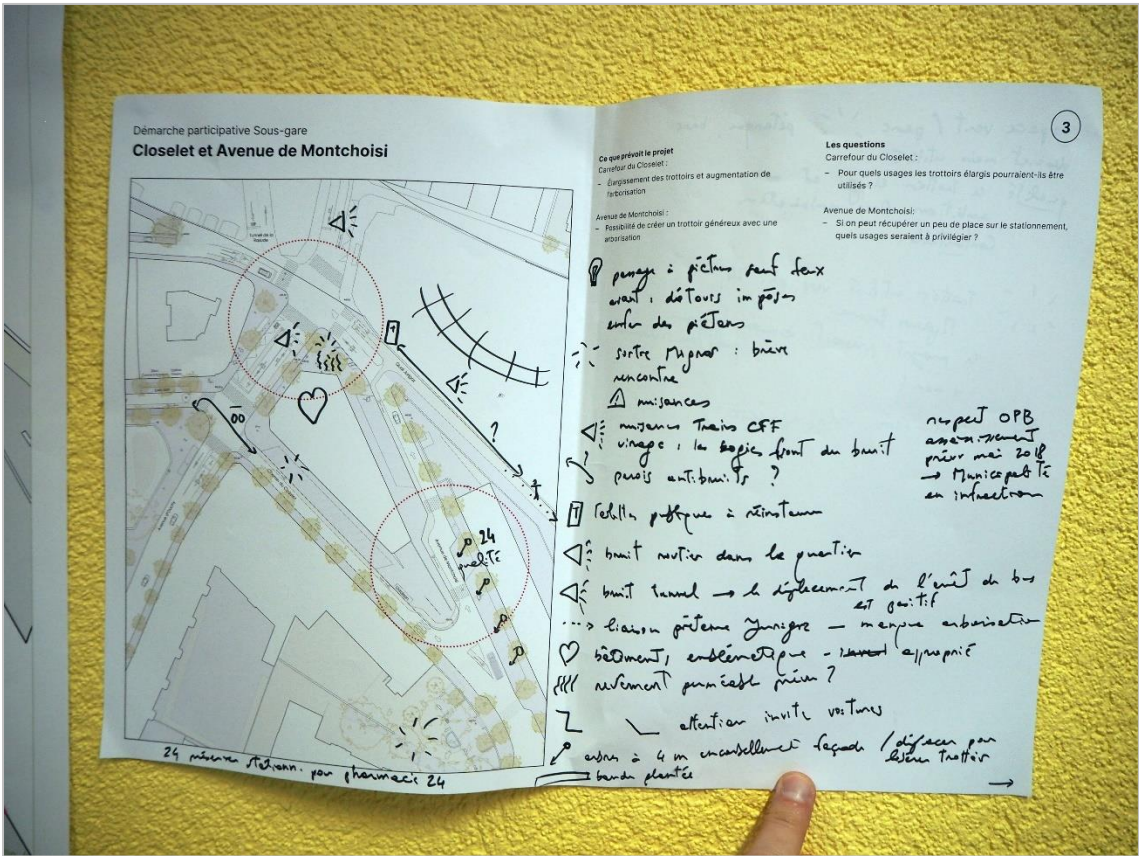 Démarche participative Sous-gare
Closelet et Avenue de Montchoisi
3
Ce que prévoit le projet
Carrefour du Closelet :
- Élargissement des trottoirs et augmentation de
l'arborisation
Avenue de Montchoisi :
- Possibilité de créer un trottoir généreux avec une
arborisation
Les questions
Carrefour du Closelet :
- Pour quels usages les trottoirs élargis pourraient-ils être
utilisés ?
Avenue de Montchoisi:
- Si on peut récupérer un peu de place sur le stationnement,
quels usages seraient à privilégier ?
passage à piétons sauf feux
avant : détours imposés
enfer des piétons
sortie Migros : brève
rencontre
nuisances
nuisances Trains CFF
virage : les bogies font du bruit
parois antibruits ?
respect OPB
assainissement
prévu mai 2018
→ Municipalité
en infraction
T publique à réinstaurer
bruit routier dans le quartier
bruit tunnel → le déplacement de l'arrêt de bus
est positif
liaison piétonne — manque arborisation
bâtiment, emblématique - approprié
revêtement perméable prévu ?
attention invite voitures
arbres à 4 m encorbellement façade /
trottoir
bande plantée
→
?
T
24
qualité
24 stationn. pour pharmacie 24